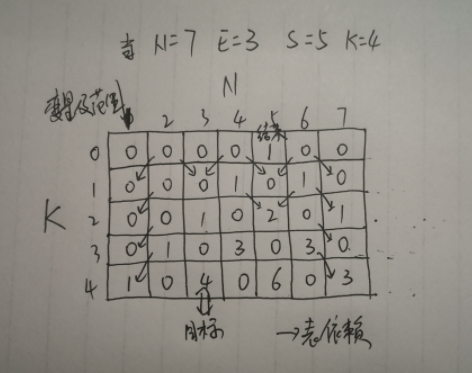 当 N=7 E=3 S=5 K=4
N
变量及范围
1 2 3 4 5 6 7
结果
0 0 0 0 0 1 0 0
1 0 0 0 1 0 1 0
K
2 0 0 1 0 2 0 1
3 0 1 0 3 0 3 0
4 1 0 4 0 6 0 3
目标 →表依赖